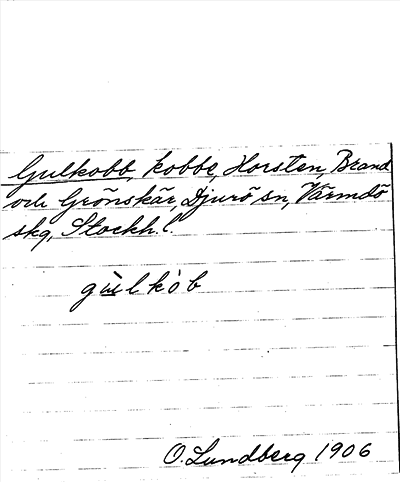 Gulkobb, kobbe, Horsten, Brand
och Grönskär, Djurö sn, Värmdö
skg, Stockh. l.
gu̇lkȯb
O. Lundberg 1906